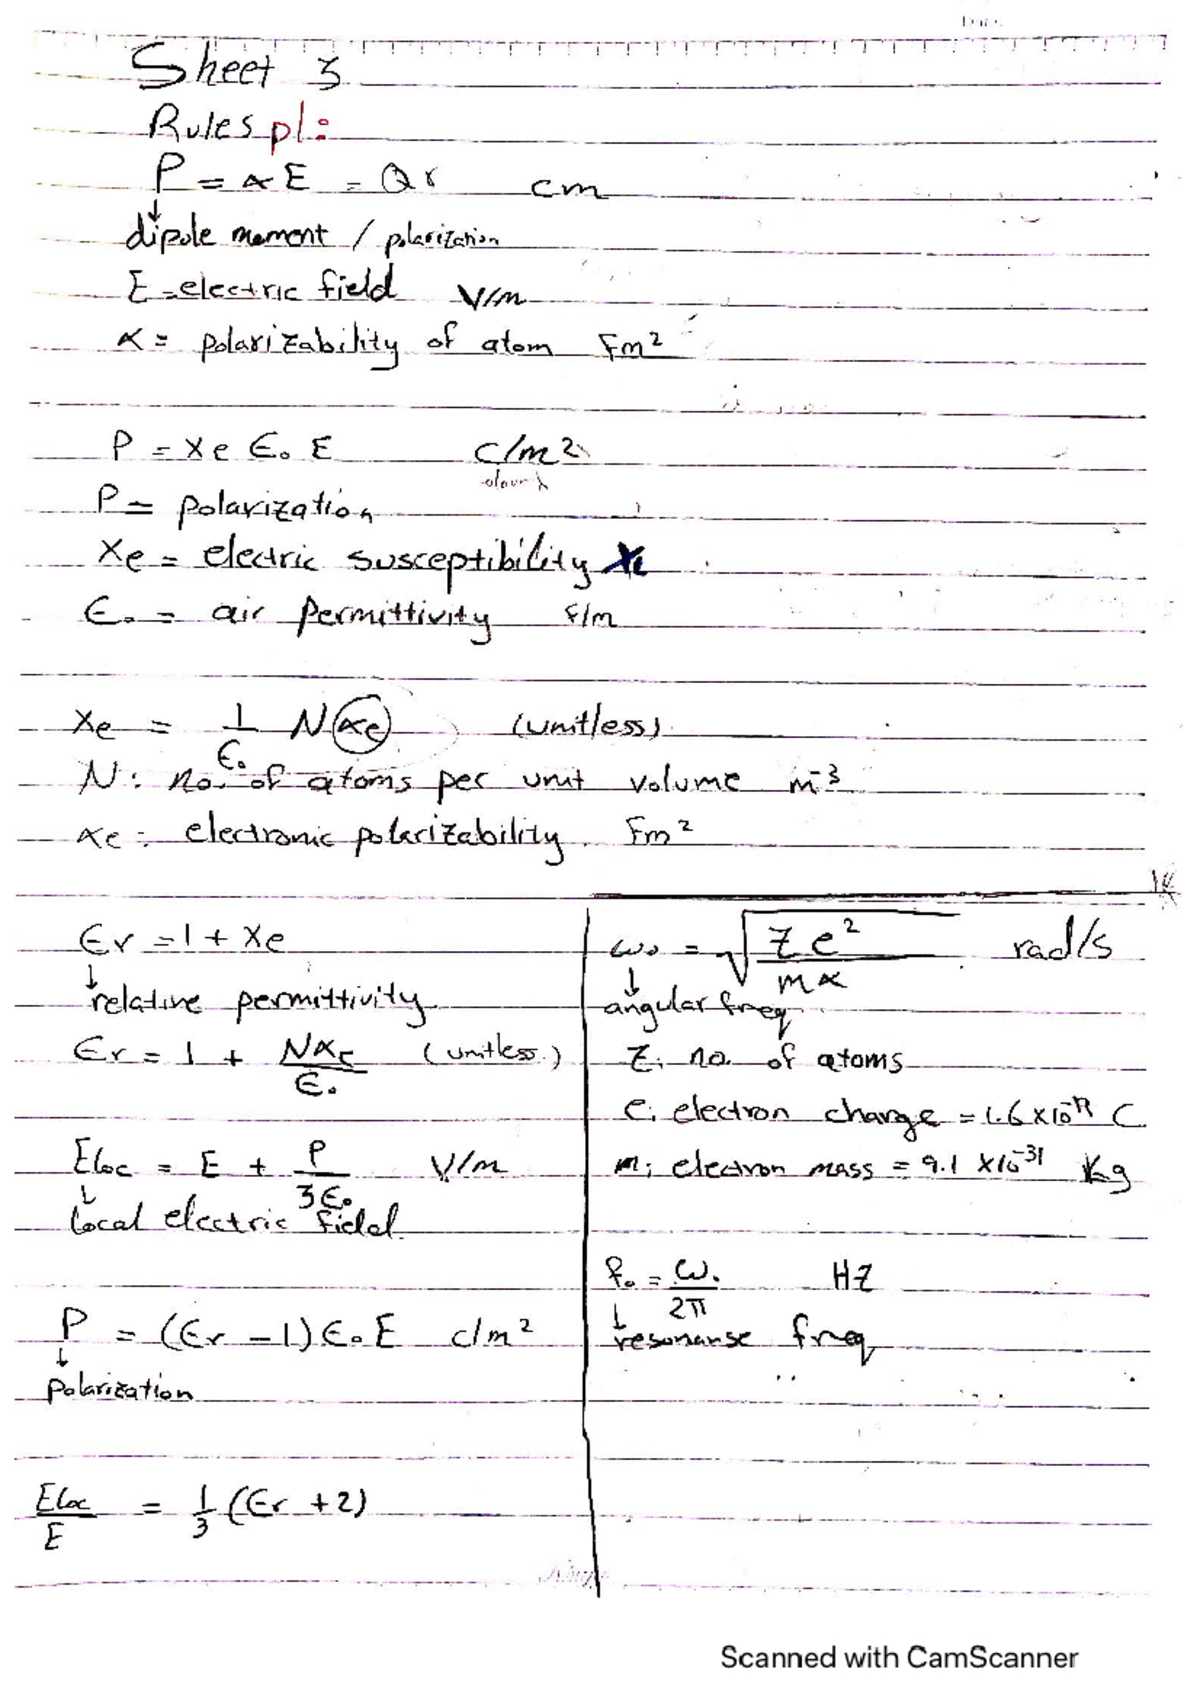 Sheet 3
Rules pl:
P = α E = Q r cm
↓
dipole moment / polarization
E = electric field V/m
α = polarizability of atom Fm²
P = Xe Є₀ E C/m²
P = polarization
Xe = electric susceptibility Xe
Є₀ = air Permittivity F/m
Xe = 1/Є₀ N αe (unitless)
N: no. of atoms per unit volume m⁻³
αe: electronic polarizability Fm²
Єr = 1 + Xe
↓
relative permittivity
Єr = 1 + Nαe/Є₀ (unitless)
Eloc = E + P/3Є₀ V/m
↓
local electric field
P = (Єr - 1) Є₀ E c/m²
↓
polarization
Eloc/E = 1/3 (Єr + 2)
ω₀ = √(Z e²/mα) rad/s
↓
angular freq
Z: no. of atoms
e: electron charge = 1.6 x 10⁻¹⁹ C
m: electron mass = 9.1 x 10⁻³¹ Kg
f₀ = ω₀/2π HZ
↓
resonanse freq
Scanned with CamScanner